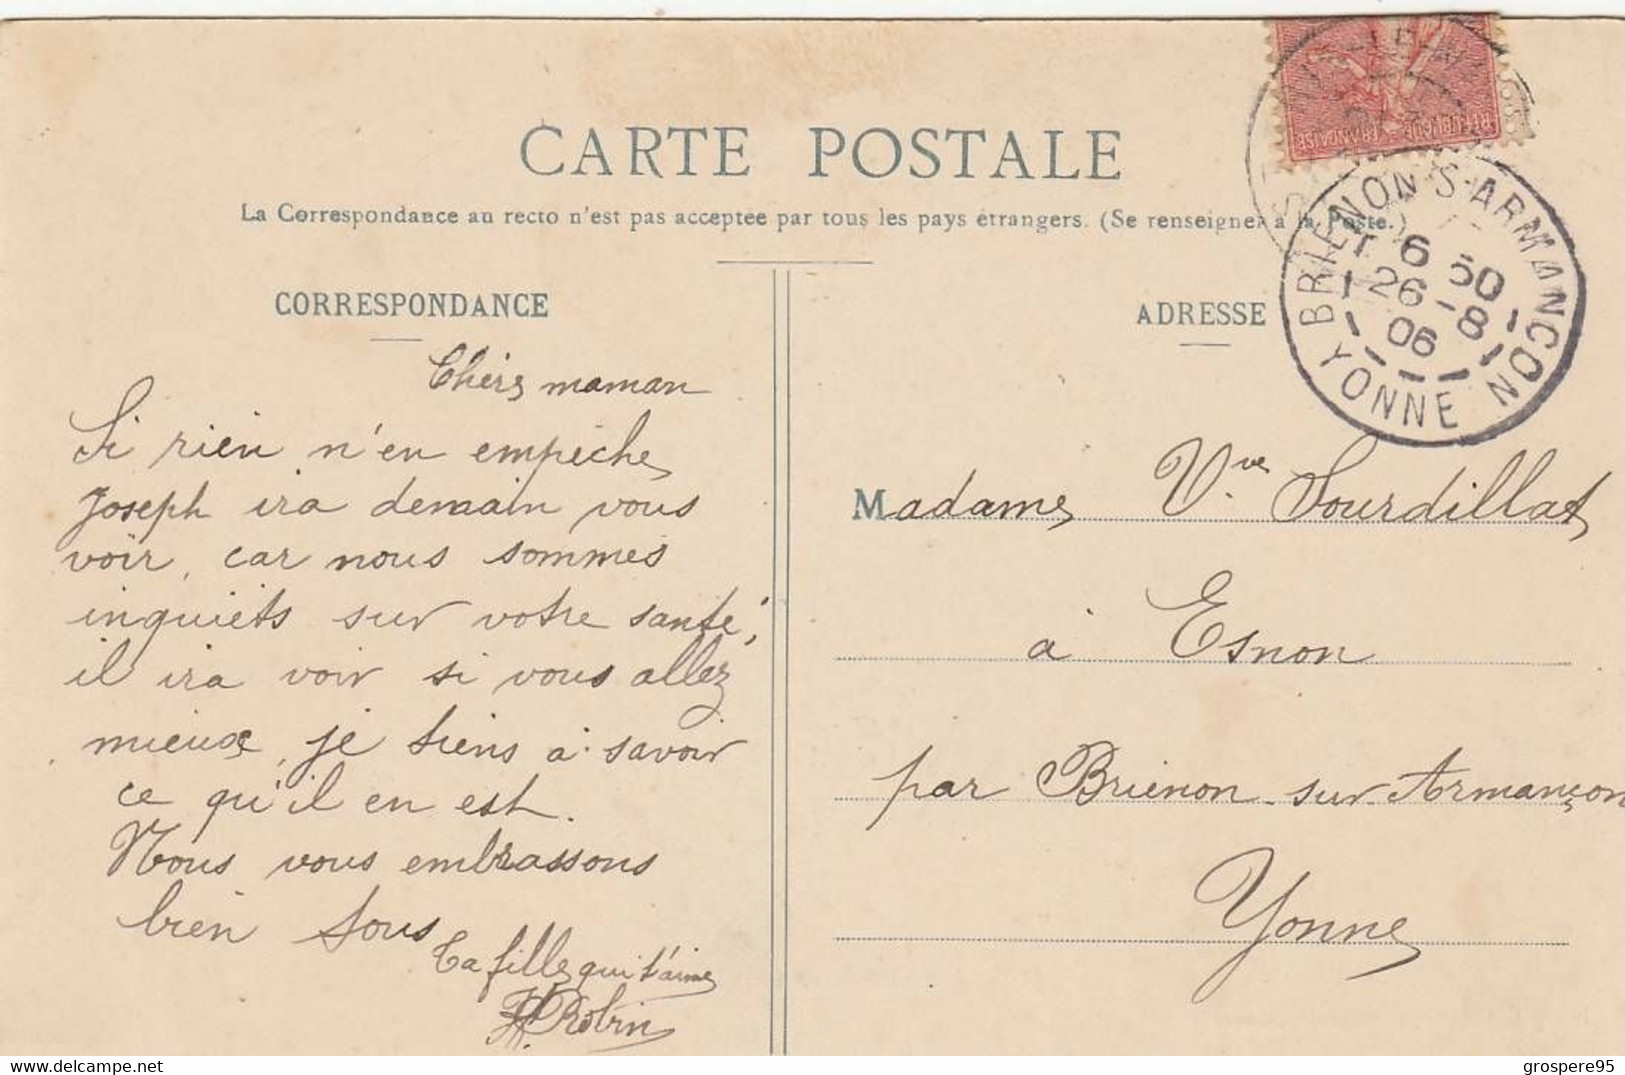 CARTE POSTALE
La Correspondance au recto n'est pas acceptee par tous les pays étrangers. (Se renseigner à la Poste.)
CORRESPONDANCE
Chère maman
Si rien n'en empêche
Joseph ira demain vous
voir, car nous sommes
inquiets sur votre santé,
il ira voir si vous allez
mieux, je tiens à savoir
ce qu'il en est.
Nous vous embrassons
bien tous
Ta fille qui t'aime
Robin
ADRESSE
Madame Vve Sourdillat
à Esnon
par Brienon-sur-Armançon
Yonne
REPUBLIQUE FRANÇAISE
BRIENON-S-ARMANCON
6 50
26 -8
06
YONNE
grospere95